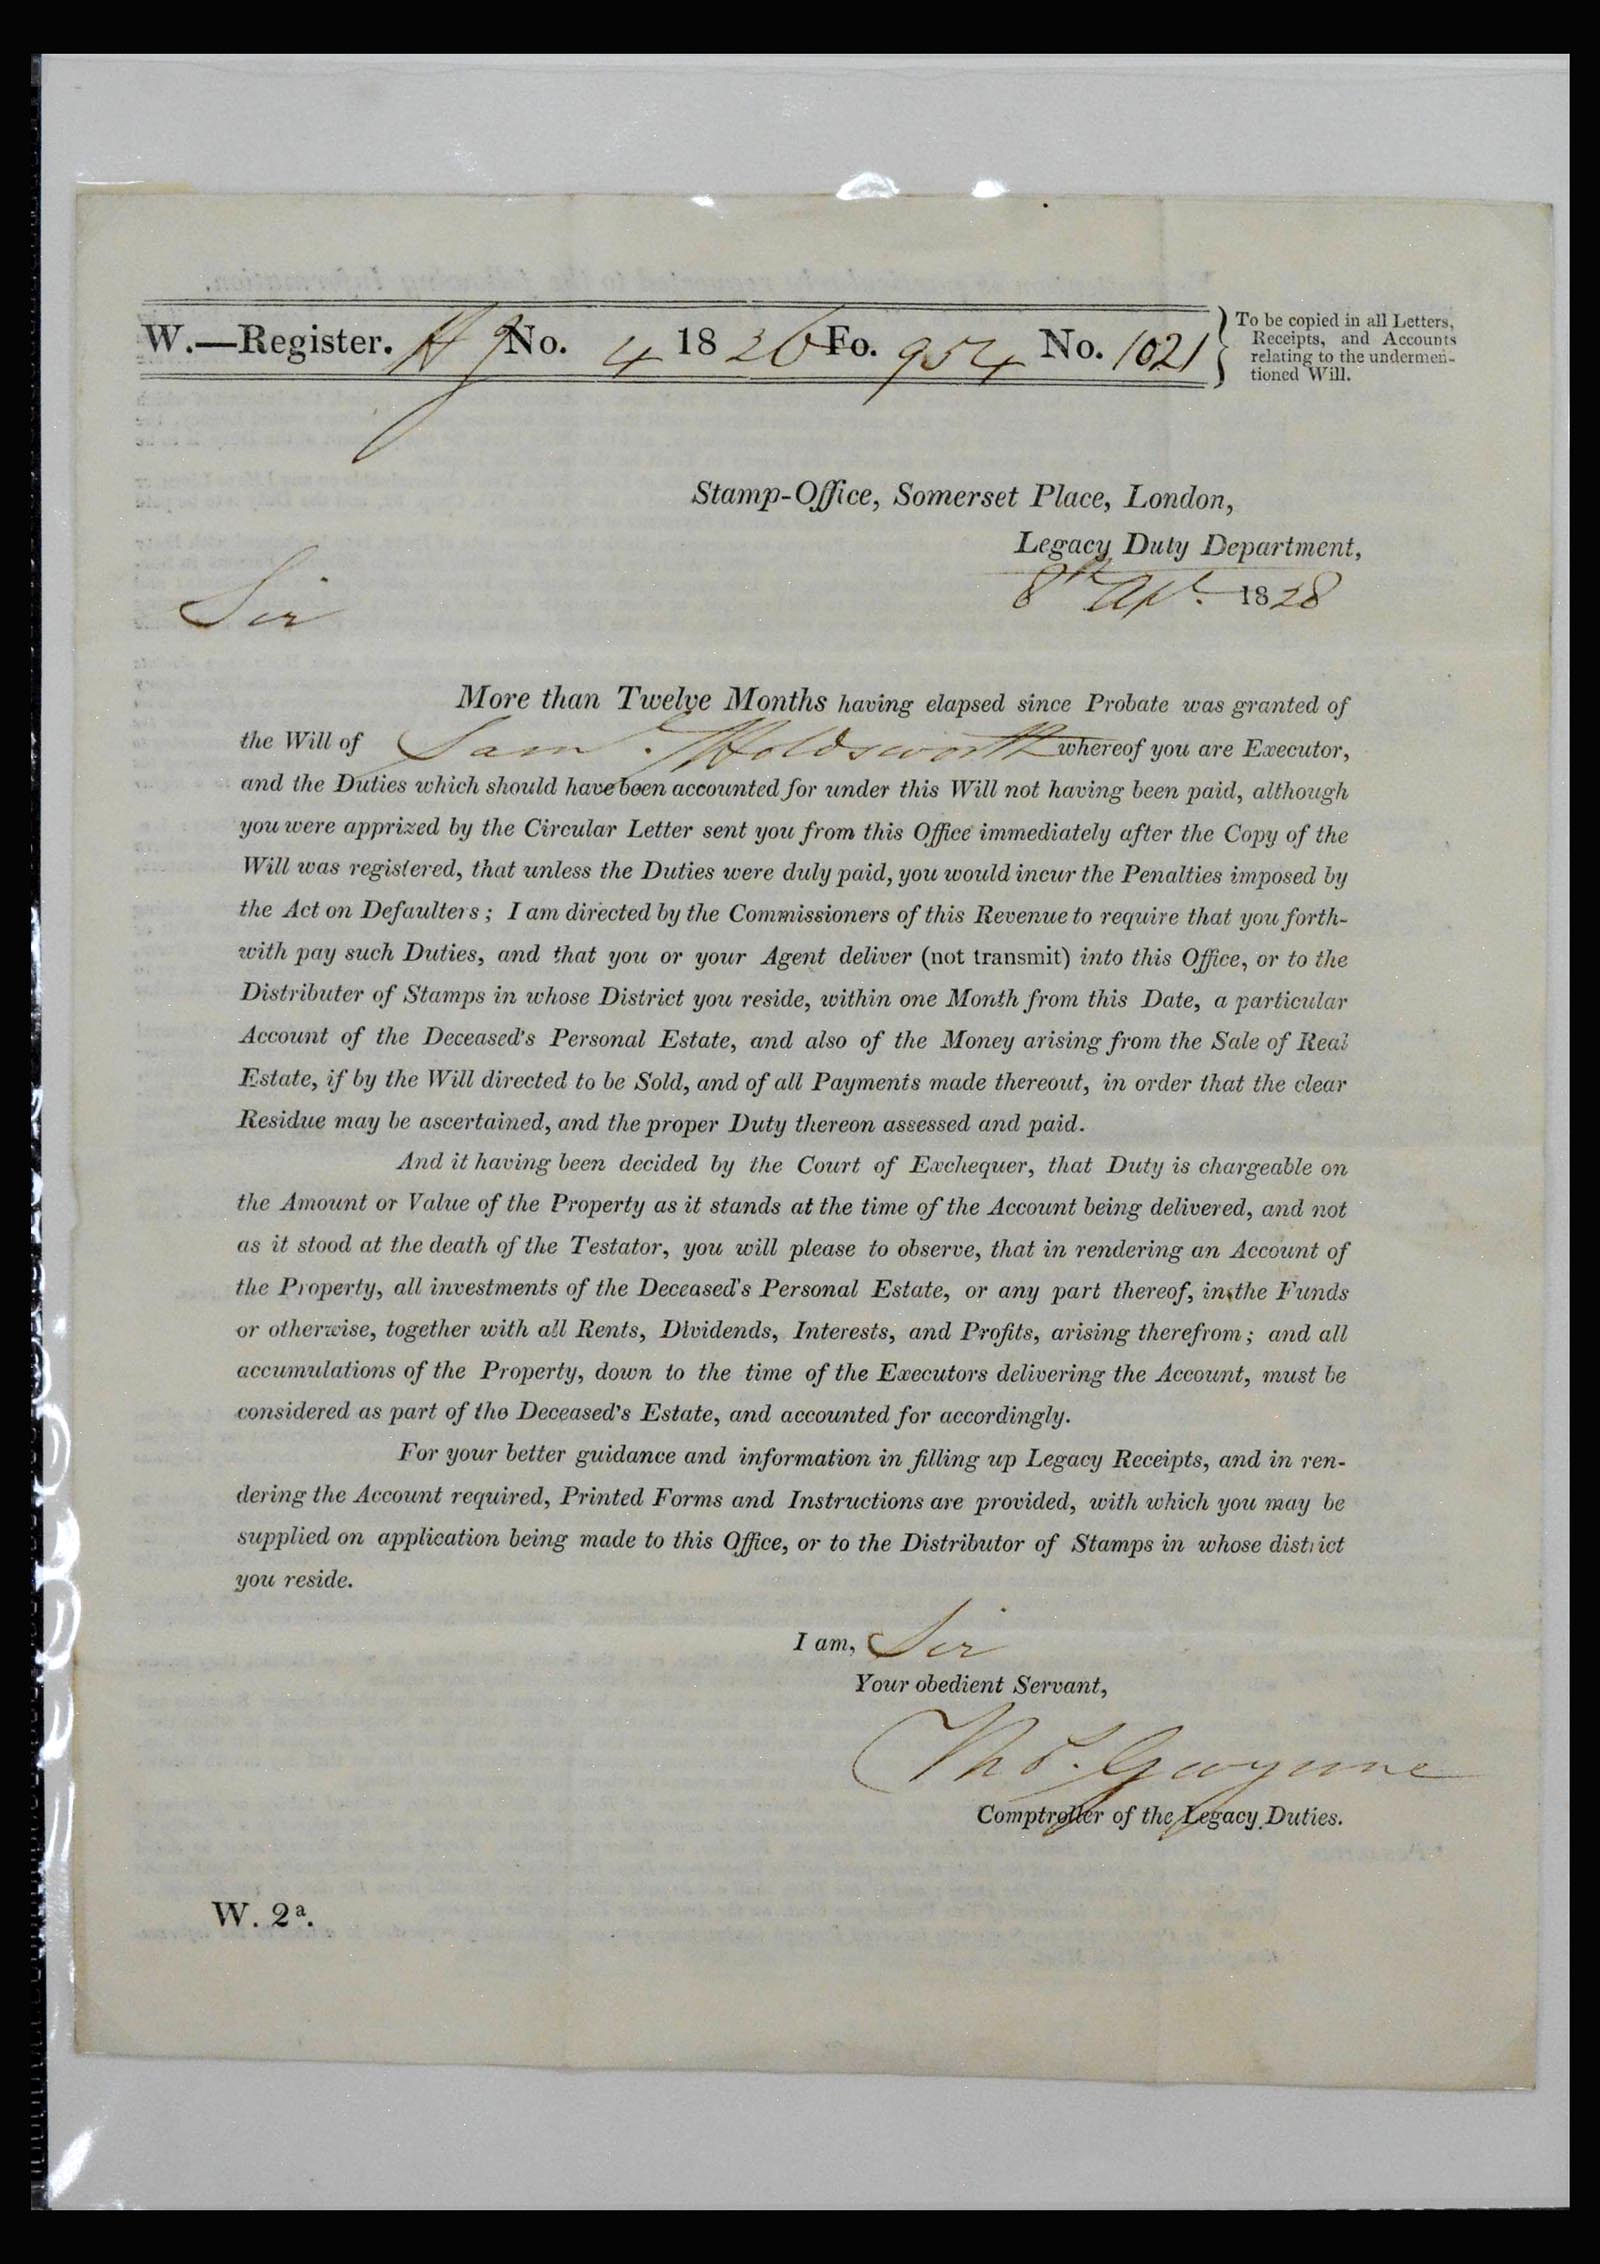 W.—Register. No. 4 1826 Fo. 954 No. 1021
To be copied in all Letters,
Receipts, and Accounts
relating to the undermen-
tioned Will.
Stamp-Office, Somerset Place, London,
Legacy Duty Department,
8th Apl. 1828
Sir
More than Twelve Months having elapsed since Probate was granted of
the Will of Saml. Holdsworth whereof you are Executor,
and the Duties which should have been accounted for under this Will not having been paid, although
you were apprized by the Circular Letter sent you from this Office immediately after the Copy of the
Will was registered, that unless the Duties were duly paid, you would incur the Penalties imposed by
the Act on Defaulters; I am directed by the Commissioners of this Revenue to require that you forth-
with pay such Duties, and that you or your Agent deliver (not transmit) into this Office, or to the
Distributer of Stamps in whose District you reside, within one Month from this Date, a particular
Account of the Deceased's Personal Estate, and also of the Money arising from the Sale of Real
Estate, if by the Will directed to be Sold, and of all Payments made thereout, in order that the clear
Residue may be ascertained, and the proper Duty thereon assessed and paid.
And it having been decided by the Court of Exchequer, that Duty is chargeable on
the Amount or Value of the Property as it stands at the time of the Account being delivered, and not
as it stood at the death of the Testator, you will please to observe, that in rendering an Account of
the Property, all investments of the Deceased's Personal Estate, or any part thereof, in the Funds
or otherwise, together with all Rents, Dividends, Interests, and Profits, arising therefrom; and all
accumulations of the Property, down to the time of the Executors delivering the Account, must be
considered as part of the Deceased's Estate, and accounted for accordingly.
For your better guidance and information in filling up Legacy Receipts, and in ren-
dering the Account required, Printed Forms and Instructions are provided, with which you may be
supplied on application being made to this Office, or to the Distributor of Stamps in whose district
you reside.
I am, Sir
Your obedient Servant,
Thos. Gwynne
Comptroller of the Legacy Duties.
W. 2a.